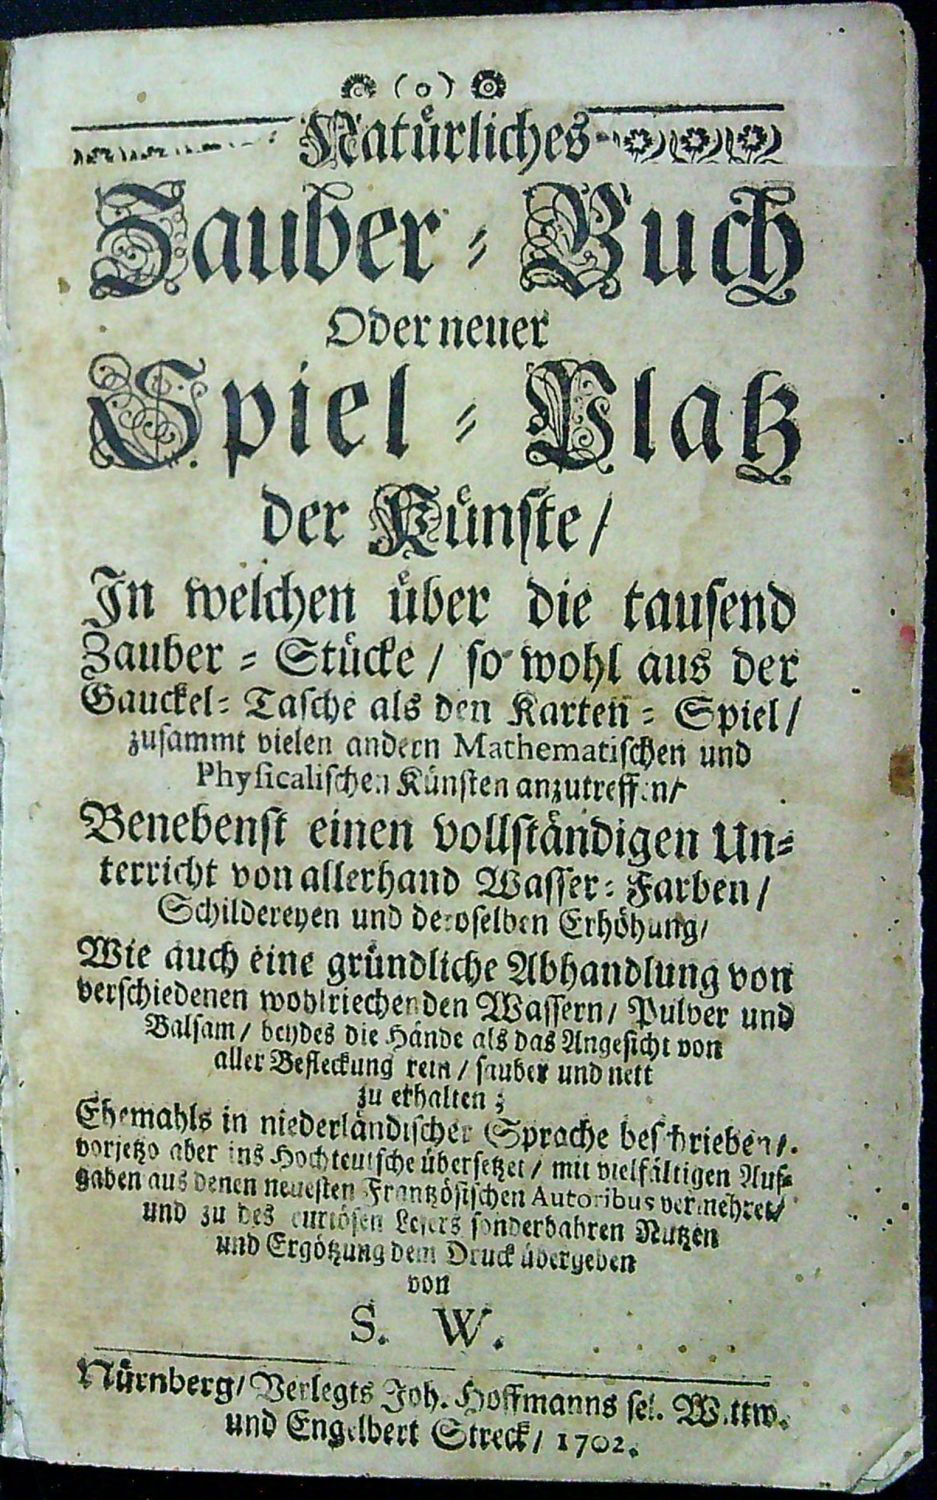 Natürliches
Zauber-Buch
Oder neuer
Spiel-Platz
der Künste/
In welchen über die tausend
Zauber-Stücke/ so wohl aus der
Gauckel-Tasche als den Karten-Spiel/
zusammt vielen andern Mathematischen und
Physicalischen Künsten anzutreffen/
Benebenst einen vollständigen Un-
terricht von allerhand Wasser-Farben/
Schildereyen und deroselben Erhöhung/
Wie auch eine gründliche Abhandlung von
verschiedenen wohlriechenden Wassern/ Pulver und
Balsam/ beydes die Hände als das Angesicht von
aller Befleckung rein/ sauber und nett
zu erhalten;
Ehemahls in niederländischer Sprache beschrieben/
vorjetzo aber ins Hochteutsche übersetzet/ mit vielfältigen Auf-
gaben aus denen neuesten Frantzösischen Autoribus vermehret/
und zu des curiösen Lesers sonderbahren Nutzen
und Ergötzung dem Druck übergeben
von
S. W.
Nürnberg/ Verlegts Joh. Hoffmanns sel. Wittw.
und Engelbert Streck/ 1702.